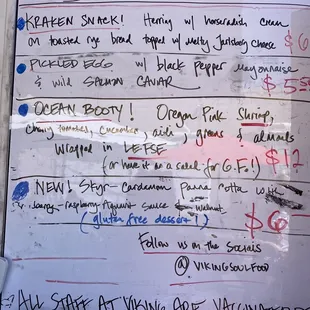 KRAKEN SNACK! Herring w/ horseradish cream
on toasted rye bread topped w/ melty Jarlsberg cheese $6
PICKLED EGG w/ black pepper mayonnaise
& wild SALMON CAVIAR $5
OCEAN BOOTY! Oregon Pink Shrimp,
cherry tomatoes, cucumber, aioli, greens & almonds
Wrapped in LEFSE
(or have it as a salad for G.F.!) $12
NEW! Skyr-Cardamom Panna Cotta with
-raspberry sauce walnut
(gluten free dessert!) $6
Follow us on the Socials
@VIKINGSOULFOOD
ALL STAFF AT VIKING ARE VACCINATED